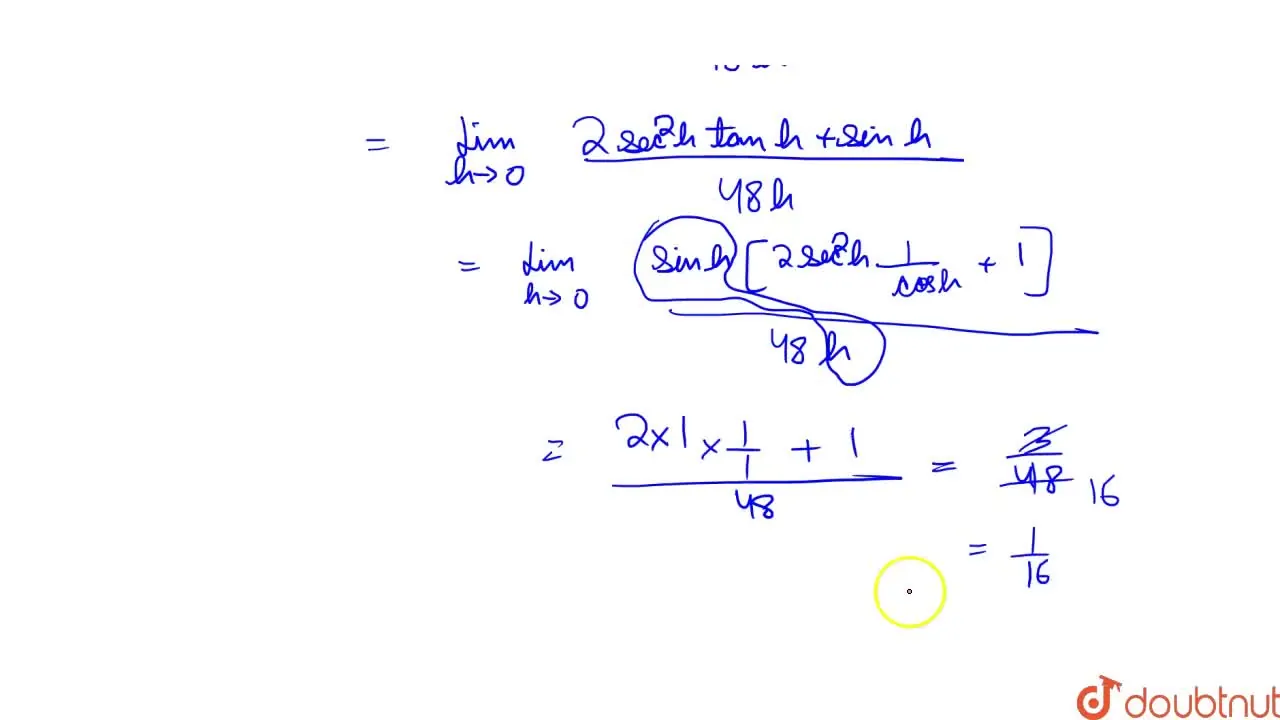 = Lim h→0 2 sec²h tan h + sin h / 48h
= Lim h→0 sinh [2 sec²h 1/cosh + 1] / 48 h
= 2×1 × 1/1 + 1 / 48 = 3/48 16
= 1/16
doubtnut